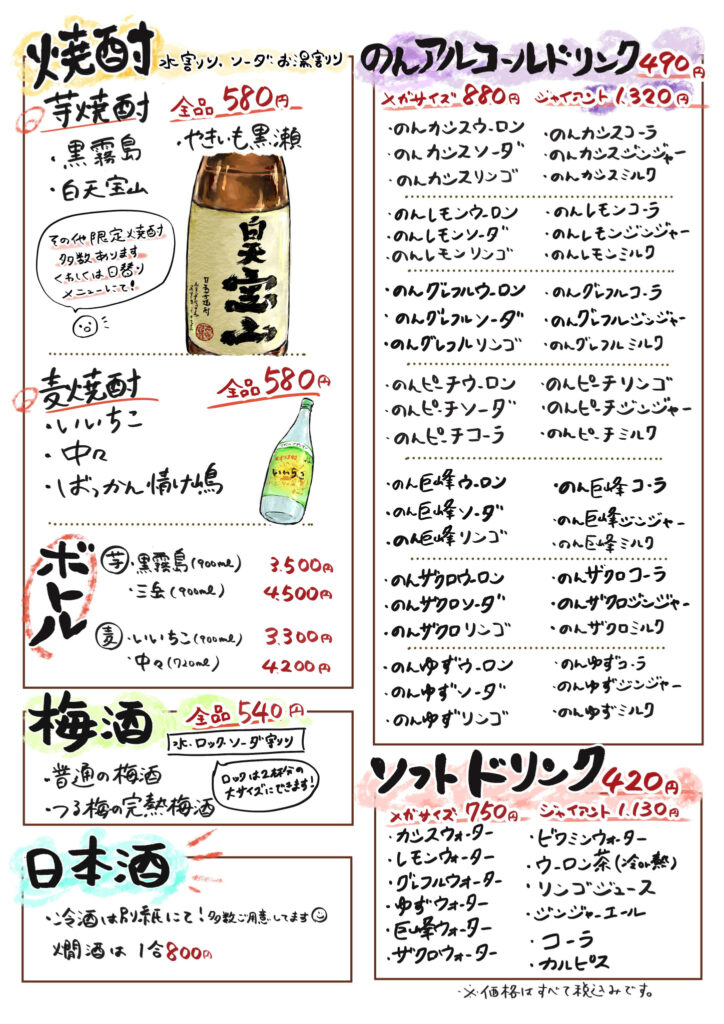 焼酎 水割り、ソーダ、お湯割り
芋焼酎 全品580円
・黒霧島
・やきいも黒瀬
・白天宝山
その他限定焼酎
多数あります
くわしくは日替り
メニューにて!
白天宝山
麦焼酎 全品580円
・いいちこ
・中々
・ばっかん情け嶋
いいちこ
ボトル
芋・黒霧島(900ml) 3.500円
・三岳(900ml) 4.500円
麦・いいちこ(900ml) 3.300円
・中々(720ml) 4.200円
梅酒 全品540円
水・ロック・ソーダ割り
・普通の梅酒
・つる梅の完熟梅酒
ロックは2杯分の
大サイズにできます!
日本酒
・冷酒は別紙にて!多数ご用意してます
燗酒は1合800円
のんアルコールドリンク490円
メガサイズ880円 ジャイアント1.320円
・のんカシスウーロン ・のんカシスコーラ
・のんカシスソーダ ・のんカシスジンジャー
・のんカシスリンゴ ・のんカシスミルク
・のんレモンウーロン ・のんレモンコーラ
・のんレモンソーダ ・のんレモンジンジャー
・のんレモンリンゴ ・のんレモンミルク
・のんグレフルウーロン ・のんグレフルコーラ
・のんグレフルソーダ ・のんグレフルジンジャー
・のんグレフルリンゴ ・のんグレフルミルク
・のんピーチウーロン ・のんピーチリンゴ
・のんピーチソーダ ・のんピーチジンジャー
・のんピーチコーラ ・のんピーチミルク
・のん巨峰ウーロン ・のん巨峰コーラ
・のん巨峰ソーダ ・のん巨峰ジンジャー
・のん巨峰リンゴ ・のん巨峰ミルク
・のんザクロウーロン ・のんザクロコーラ
・のんザクロソーダ ・のんザクロジンジャー
・のんザクロリンゴ ・のんザクロミルク
・のんゆずウーロン ・のんゆずコーラ
・のんゆずソーダ ・のんゆずジンジャー
・のんゆずリンゴ ・のんゆずミルク
ソフトドリンク420円
メガサイズ750円 ジャイアント1.130円
・カシスウォーター ・ビタミンウォーター
・レモンウォーター ・ウーロン茶(冷or熱)
・グレフルウォーター ・リンゴジュース
・ゆずウォーター ・ジンジャーエール
・巨峰ウォーター ・コーラ
・ザクロウォーター ・カルピス
・※価格はすべて税込みです。